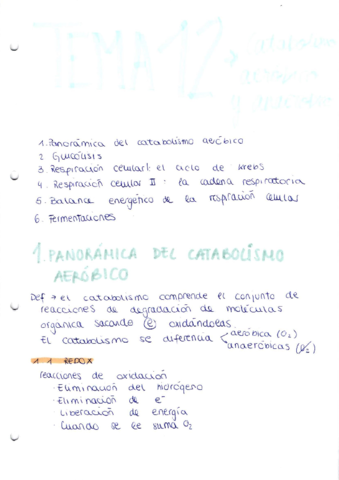 TEMA 12 → Catabolismo
aeróbico
y anaeróbico
1. Panorámica del catabolismo aeróbico
2 Glucólisis
3 Respiración celular I: el ciclo de Krebs
4. Respiración celular II : la cadena respiratoria
5. Balance energético de la respiración celular
6. Fermentaciones
1. PANORÁMICA DEL CATABOLÍSMO
AERÓBICO
Def → el catabolismo comprende el conjunto de
reacciones de degradación de moléculas
orgánica sacando (e) oxidándolas.
El catabolismo se diferencia aeróbica (O₂)
anaeróbicas (O₂)
1.1 REDOX
reacciones de oxidación
· Eliminación del hidrógeno
· Eliminación de e⁻
· Liberación de energía
· Cuando se le suma O₂